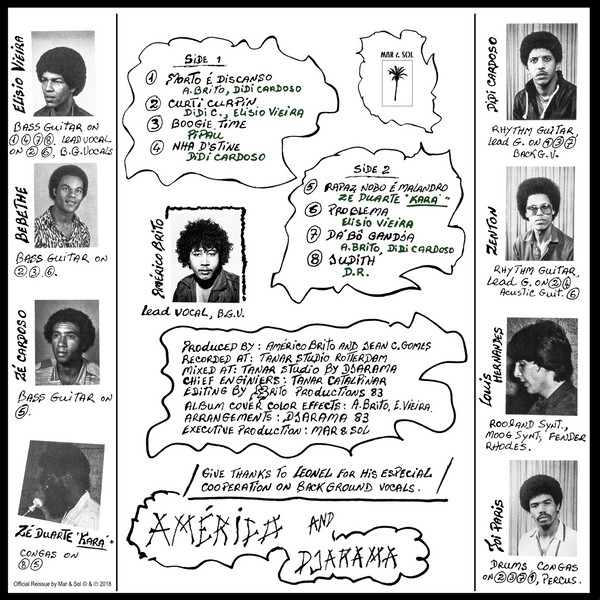 ELISIO VIEIRA
BASS GUITAR ON
①④⑦⑧. LEAD VOCAL
ON ②⑥, B.G. VOCALS
BEBETHE
BASS GUITAR ON
②③⑥.
ZÉ CARDOSO
BASS GUITAR ON
⑤.
ZÉ DUARTE "KARA"
CONGAS ON
⑧⑤
Official Reissue by Mar & Sol © & ℗ 2018
SIDE 1
① PORTO É DISCANSO
A. BRITO, DIDI CARDOSO
② CURTI CURPIN
DIDI C., ELISIO VIEIRA
③ BOOGIE TIME
PIPAU
④ NHA D'STINE
DIDI CARDOSO
MAR & SOL
SIDE 2
⑤ RAPAZ NOBO É MALANDRO
ZE DUARTE "KARA"
⑥ PROBLEMA
ELISIO VIEIRA
⑦ DA'BÔ GANDJA
A. BRITO, DIDI CARDOSO
⑧ JUDITH
D.R.
AMÉRICO BRITO
LEAD VOCAL, B.G.V.
PRODUCED BY : AMÉRICO BRITO AND JEAN C. GOMES
RECORDED AT : TANAR STUDIO ROTTERDAM
MIXED AT : TANAR STUDIO BY DJARAMA
CHIEF ENGINIERS : TANAR CATALPINAR
EDITING BY BRITO PRODUCTIONS 83
ALBUM COVER COLOR EFFECTS : A. BRITO, E. VIEIRA.
ARRANGEMENTS : DJARAMA 83
EXECUTIVE PRODUCTION : MAR & SOL
GIVE THANKS TO LEONEL FOR HIS ESPECIAL
COOPERATION ON BACK GROUND VOCALS.
AMÉRICO AND
DJARAMA
DIDI CARDOSO
RHYTHM GUITAR
LEAD G. ON ①③⑦,
BACK G.V.
ZENTON
RHYTHM GUITAR,
LEAD G. ON ②④
ACUSTIC GUIT. ⑥
LOUIS HERNANDES
ROOLAND SYNT.,
MOOG SYNT, FENDER
RHODES.
TOI PARIS
DRUMS CONGAS
ON ②③⑦①, PERCUS.